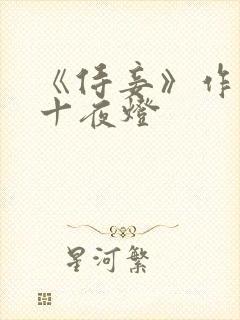 《侍妾》作
十夜燈
星河繁